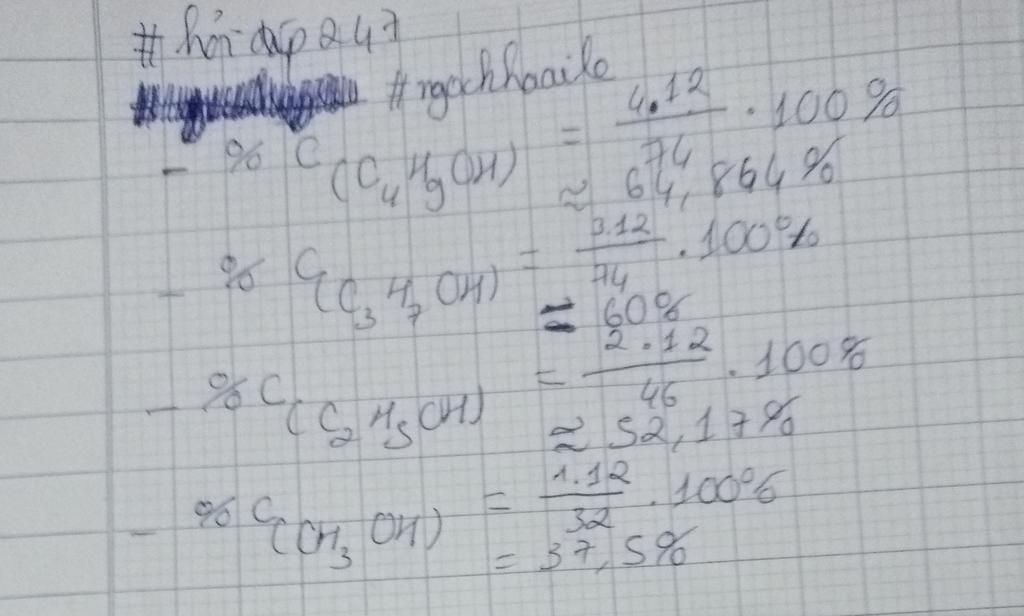 # hỏi đáp 247
#ngochhaaile
- % C (C₄H₉OH) = 4.12/74 . 100%
≈ 64,864%
- % C (C₃H₇OH) = 3.12/74 . 100%
= 60%
- % C (C₂H₅OH) = 2.12/46 . 100%
≈ 52,17%
- % C (CH₃OH) = 1.12/32 . 100%
= 37,5%